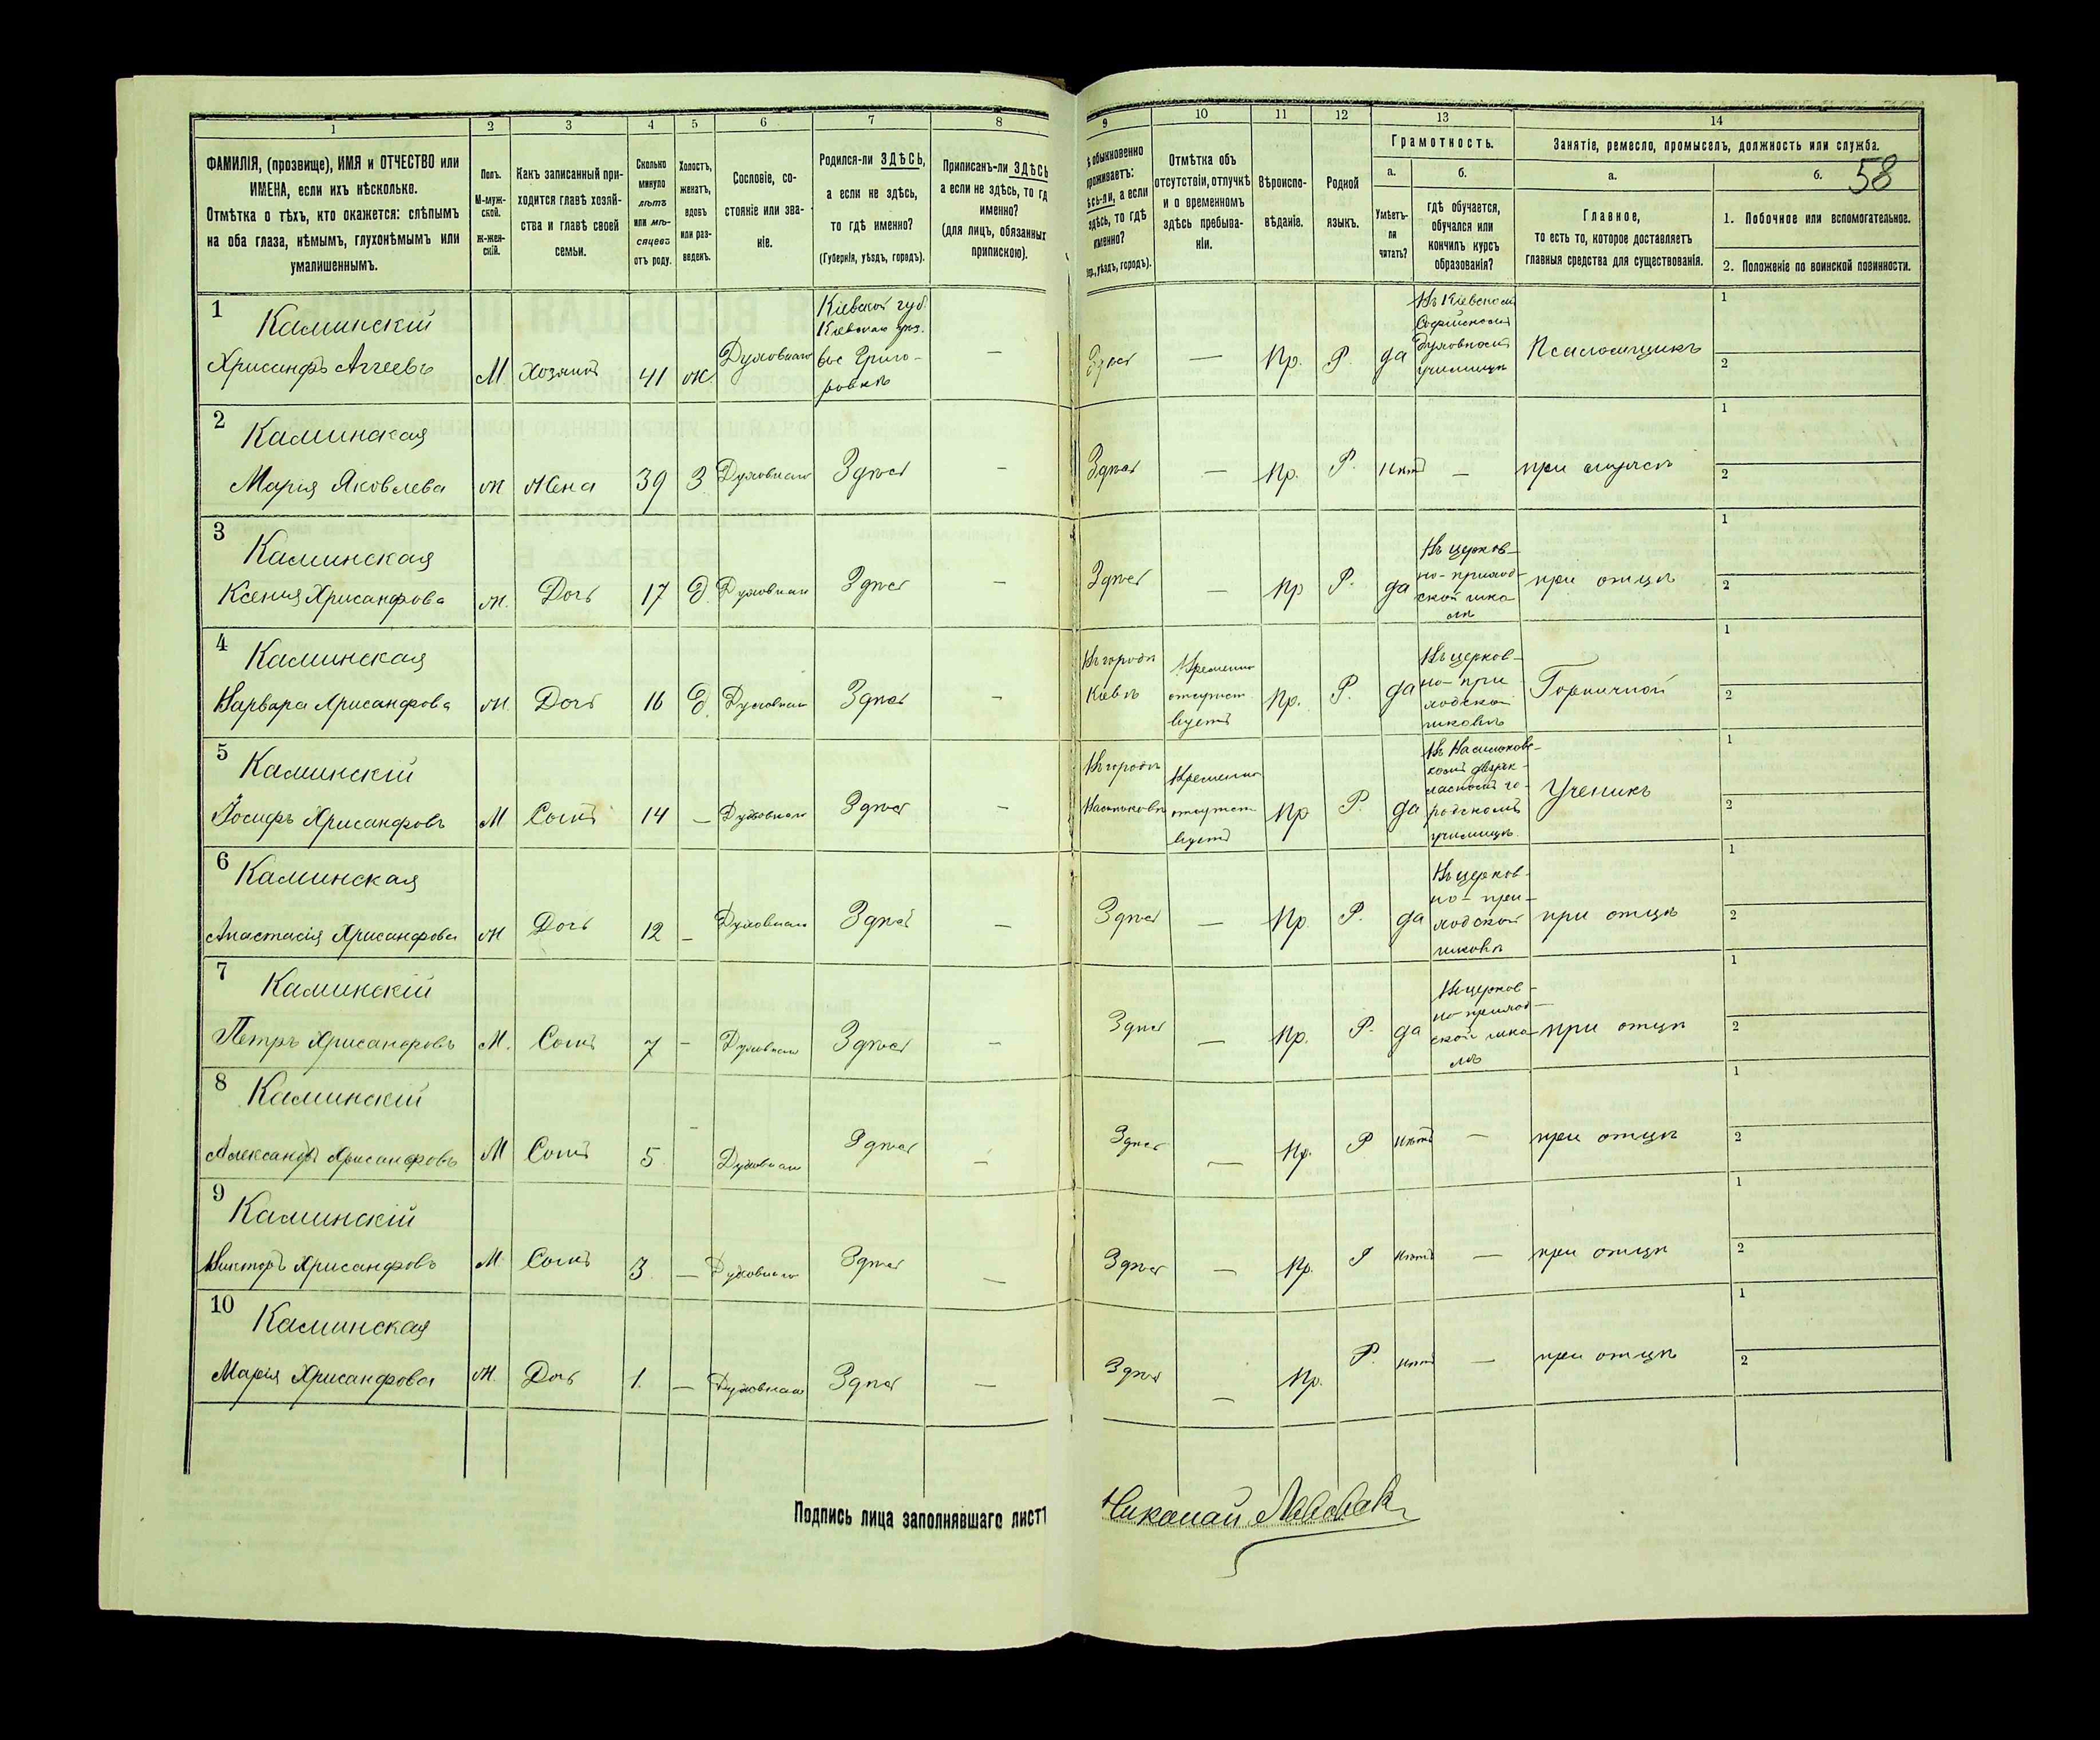 1 2 3 4 5 6 7 8 9 10 11 12 13 14
ФАМИЛІЯ, (прозвище), ИМЯ и ОТЧЕСТВО или
ИМЕНА, если ихъ нѣсколько.
Отмѣтка о тѣхъ, кто окажется: слѣпымъ
на оба глаза, нѣмымъ, глухонѣмымъ или
умалишеннымъ.
Полъ.
М-муж-
ской.
Ж-жен-
скій.
Какъ записанный при-
ходится главѣ хозяй-
ства и главѣ своей
семьи.
Сколько
минуло
лѣтъ
или мѣ-
сяцевъ
отъ роду.
Холостъ,
женатъ,
вдовъ
или раз-
веденъ.
Сословіе, со-
стояніе или зва-
ніе.
Родился-ли ЗДѢСЬ,
а если не здѣсь,
то гдѣ именно?
(Губернія, уѣздъ, городъ).
Приписанъ-ли ЗДѢСЬ
а если не здѣсь, то гд
именно?
(для лицъ, обязанных
припискою).
ѣ обыкновенно
проживаетъ:
ѣсь-ли, а если
здѣсь, то гдѣ
именно?
уѣздъ, городъ).
Отмѣтка объ
отсутствіи, отлучкѣ
и о временномъ
здѣсь пребыва-
ніи.
Вѣроиспо-
вѣданіе.
Родной
языкъ.
Грамотность.
а.
Умѣетъ-
ли
читать?
б.
гдѣ обучается,
обучался или
кончилъ курсъ
образованія?
Занятіе, ремесло, промыселъ, должность или служба.
а.
Главное,
то есть то, которое доставляетъ
главныя средства для существованія.
б.
58
1. Побочное или вспомогательное.
2. Положеніе по воинской повинности.
1
Каминскій
Хрисанфъ Аггеевъ
М
Хозяинъ
41
ж.
Духовнаго
Кіевской губ.
Кіевскаго уѣз.
вос Григо-
ровкѣ
—
Здѣсь
—
Пр.
Р.
да
Въ Кіевскомъ
Софійскомъ
духовномъ
училищѣ
Псаломщикъ
1
2
2
Каминская
Марія Яковлева
ж
Жена
39
З
Духовнаго
Здѣсь
—
Здѣсь
—
Пр.
Р.
нѣтъ
—
при мужѣ
1
2
3
Каминская
Ксенія Хрисанфова
ж.
Дочь
17
Д.
Духовнаго
Здѣсь
—
Здѣсь
—
Пр
Р.
да
Въ церков-
но-приход-
ской шко
лѣ
при отцѣ
1
2
4
Каминская
Варвара Хрисанфова
ж.
Дочь
16
Д.
Духовнаго
Здѣсь
—
Въ городѣ
Кіевѣ
Временно
отсутст
вуетъ
Пр.
Р.
да
Въ церков-
но-при
ходской
школѣ
Горничной
1
2
5
Каминскій
Іосифъ Хрисанфовъ
М
Сынъ
14
—
Духовнаго
Здѣсь
—
Въ городѣ
Васильковѣ
Временно
отсутст
вуетъ
Пр
Р.
да
Въ Васильков-
комъ двухк-
ласномъ го-
родскомъ
училищѣ
Ученикъ
1
2
6
Каминская
Анастасія Хрисанфова
ж
Дочь
12
—
Духовнаго
Здѣсь
—
Здѣсь
—
Пр.
Р.
да
Въ церков-
но-при-
ходской
школѣ
при отцѣ
1
2
7
Каминскій
Петръ Хрисанфовъ
М.
Сынъ
7
—
Духовнаго
Здѣсь
—
Здѣсь
—
Пр.
Р.
да
Въ церков-
но-приход-
ской шко-
лѣ
при отцѣ
1
2
8
Каминскій
Александръ Хрисанфовъ
М
Сынъ
5
-
Духовнаго
Здѣсь
—
Здѣсь
—
Пр.
Р
нѣтъ
—
при отцѣ
1
2
9
Каминскій
Викторъ Хрисанфовъ
М
Сынъ
3
—
Духовнаго
Здѣсь
—
Здѣсь
—
Пр.
Р
нѣтъ
—
при отцѣ
1
2
10
Каминская
Марія Хрисанфова
ж.
Дочь
1.
—
Духовнаго
Здѣсь
—
Здѣсь
—
Пр.
Р.
нѣтъ
—
при отцѣ
1
2
Подпись лица заполнявшаго листъ
Николай